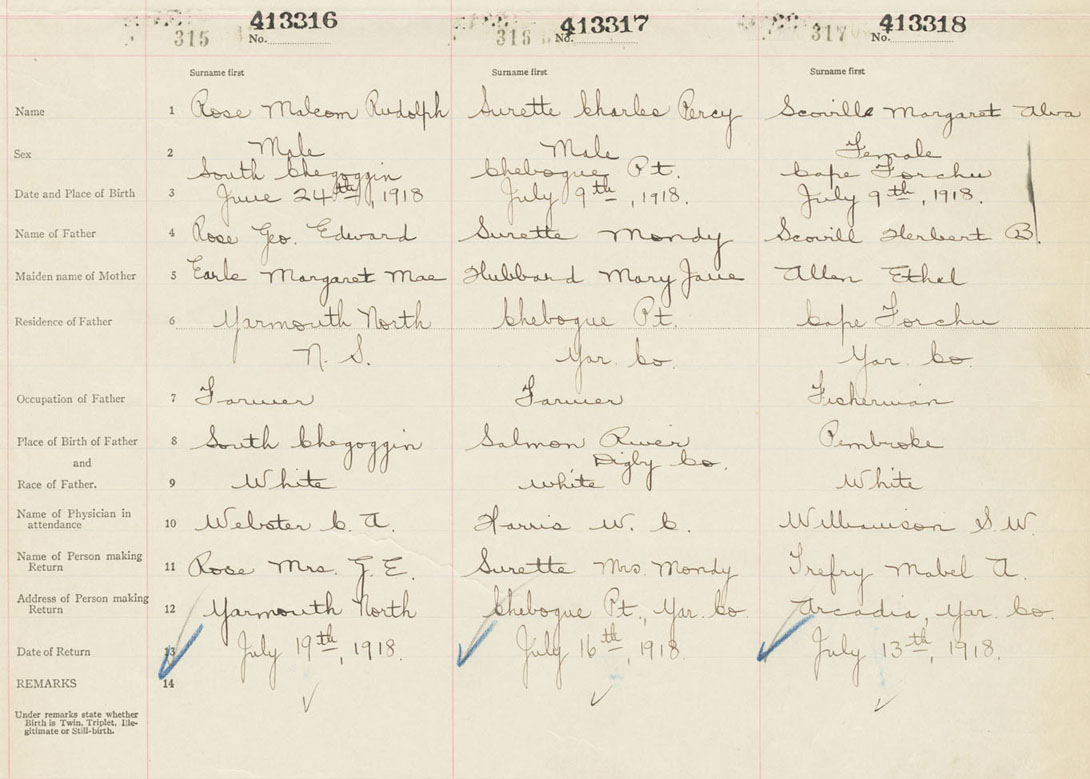 413316 413317 413318
315 No. 316 No. 317 No.
Surname first Surname first Surname first
Name 1 Rose Malcom Rudolph Surette Charles Percy Scoville Margaret Alva
Sex 2 Male Male Female
South Chegoggin Chebogue Pt. Cape Forchu
Date and Place of Birth 3 June 24th, 1918 July 9th, 1918. July 9th, 1918.
Name of Father 4 Rose Geo. Edward Surette Mondy Scovill Herbert B.
Maiden name of Mother 5 Earle Margaret Mae Hubbard Mary Jane Allen Ethel
Residence of Father 6 Yarmouth North Chebogue Pt. Cape Forchu
N. S. Yar. Co. Yar. Co.
Occupation of Father 7 Farmer Farmer Fisherman
Place of Birth of Father 8 South Chegoggin Salmon River Pembroke
and Digby Co.
Race of Father. 9 White white White
Name of Physician in attendance 10 Webster C. A. Harris W. C. Williamson S. W.
Name of Person making Return 11 Rose Mrs. G. E. Surette Mrs Mondy Trefry Mabel A.
Address of Person making Return 12 Yarmouth North Chebogue Pt., Yar. Co. Arcadia, Yar. Co.
Date of Return 13 July 19th, 1918. July 16th, 1918. July 13th, 1918.
REMARKS 14
Under remarks state whether
Birth is Twin, Triplet, Ille-
gitimate or Still-birth.